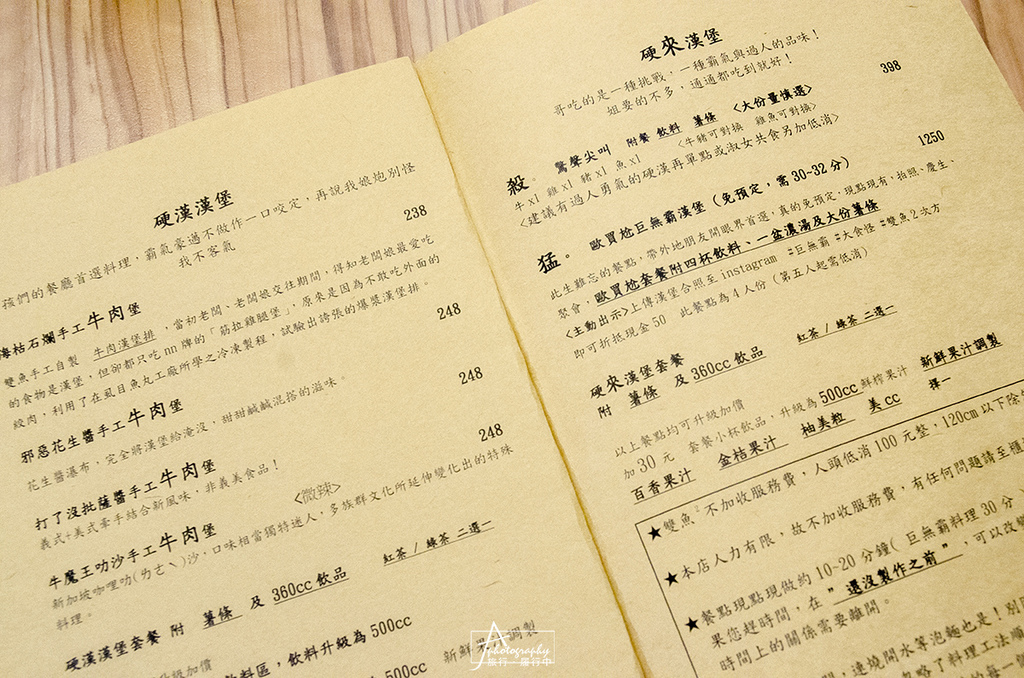 硬漢漢堡
孩們的餐廳首選料理，霸氣豪邁不做作一口咬定，再說我娘炮別怪
我不客氣
海枯石爛手工牛肉堡 238
雙魚手工自製 牛肉漢堡排，當初老闆、老闆娘交往期間，得知老闆娘最愛吃
的食物是漢堡，但卻都只吃nn牌的「筋拉雞腿堡」，原來是因為不敢吃外面的
絞肉，利用了在虱目魚丸工廠所學之冷凍製程，試驗出誇張的爆漿漢堡排。
邪惡花生醬手工牛肉堡 248
花生醬瀑布，完全將漢堡給淹沒，甜甜鹹鹹混搭的滋味。
打了沒批薩醬手工牛肉堡 248
義式+美式牽手結合新風味，非義美食品！
牛魔王叻沙手工牛肉堡 <微辣> 248
新加坡咖哩叻(ㄌㄜˋ)沙，口味相當獨特迷人，多族群文化所延伸變化出的特殊
料理。
硬漢漢堡套餐 附 薯條 及 360cc飲品 紅茶/綠茶 二選一
升級加價
飲料區，飲料升級為500cc
500cc 新鮮果汁調製
硬來漢堡
哥吃的是一種挑戰，一種霸氣與過人的品味！
姐要的不多，通通都吃到就好！
殺。 驚聲尖叫 附餐 飲料 薯條 <大份量慎選> 398
牛x1 雞x1 豬x1 魚x1 <牛豬可對換 雞魚可對換>
<建議有過人勇氣的硬漢再單點或淑女共食另加低消>
猛。 歐買尬巨無霸漢堡(免預定，需30~32分) 1250
此生難忘的餐點，帶外地朋友開眼界首選，真的免預定，現點現有，拍照、慶生、
聚會，歐買尬套餐附四杯飲料、一盆濃湯及大份薯條
<主動出示>上傳漢堡合照至instagram #巨無霸 #大食怪 #雙魚2次方
即可折抵現金50 此餐點為4人份(第五人起需低消)
硬來漢堡套餐
附 薯條 及 360cc飲品 紅茶/綠茶 二選一
以上餐點均可升級加價
加30元 套餐小杯飲品，升級為500cc鮮榨果汁 新鮮果汁調製
百香果汁 金桔果汁 柚美粒 美cc 擇一
★雙魚²不加收服務費，人頭低消100元整，120cm以下除
★本店人力有限，故不加收服務費，有任何問題請至櫃
★餐點現點現做約10~20分鐘(巨無霸料理30分
果您趕時間，在"還沒製作之前"，可以改變
時間上的關係需要離開。
，連燒開水等泡麵也是！別
忽略了料理工法順
的每一個
photography
旅行一履行中